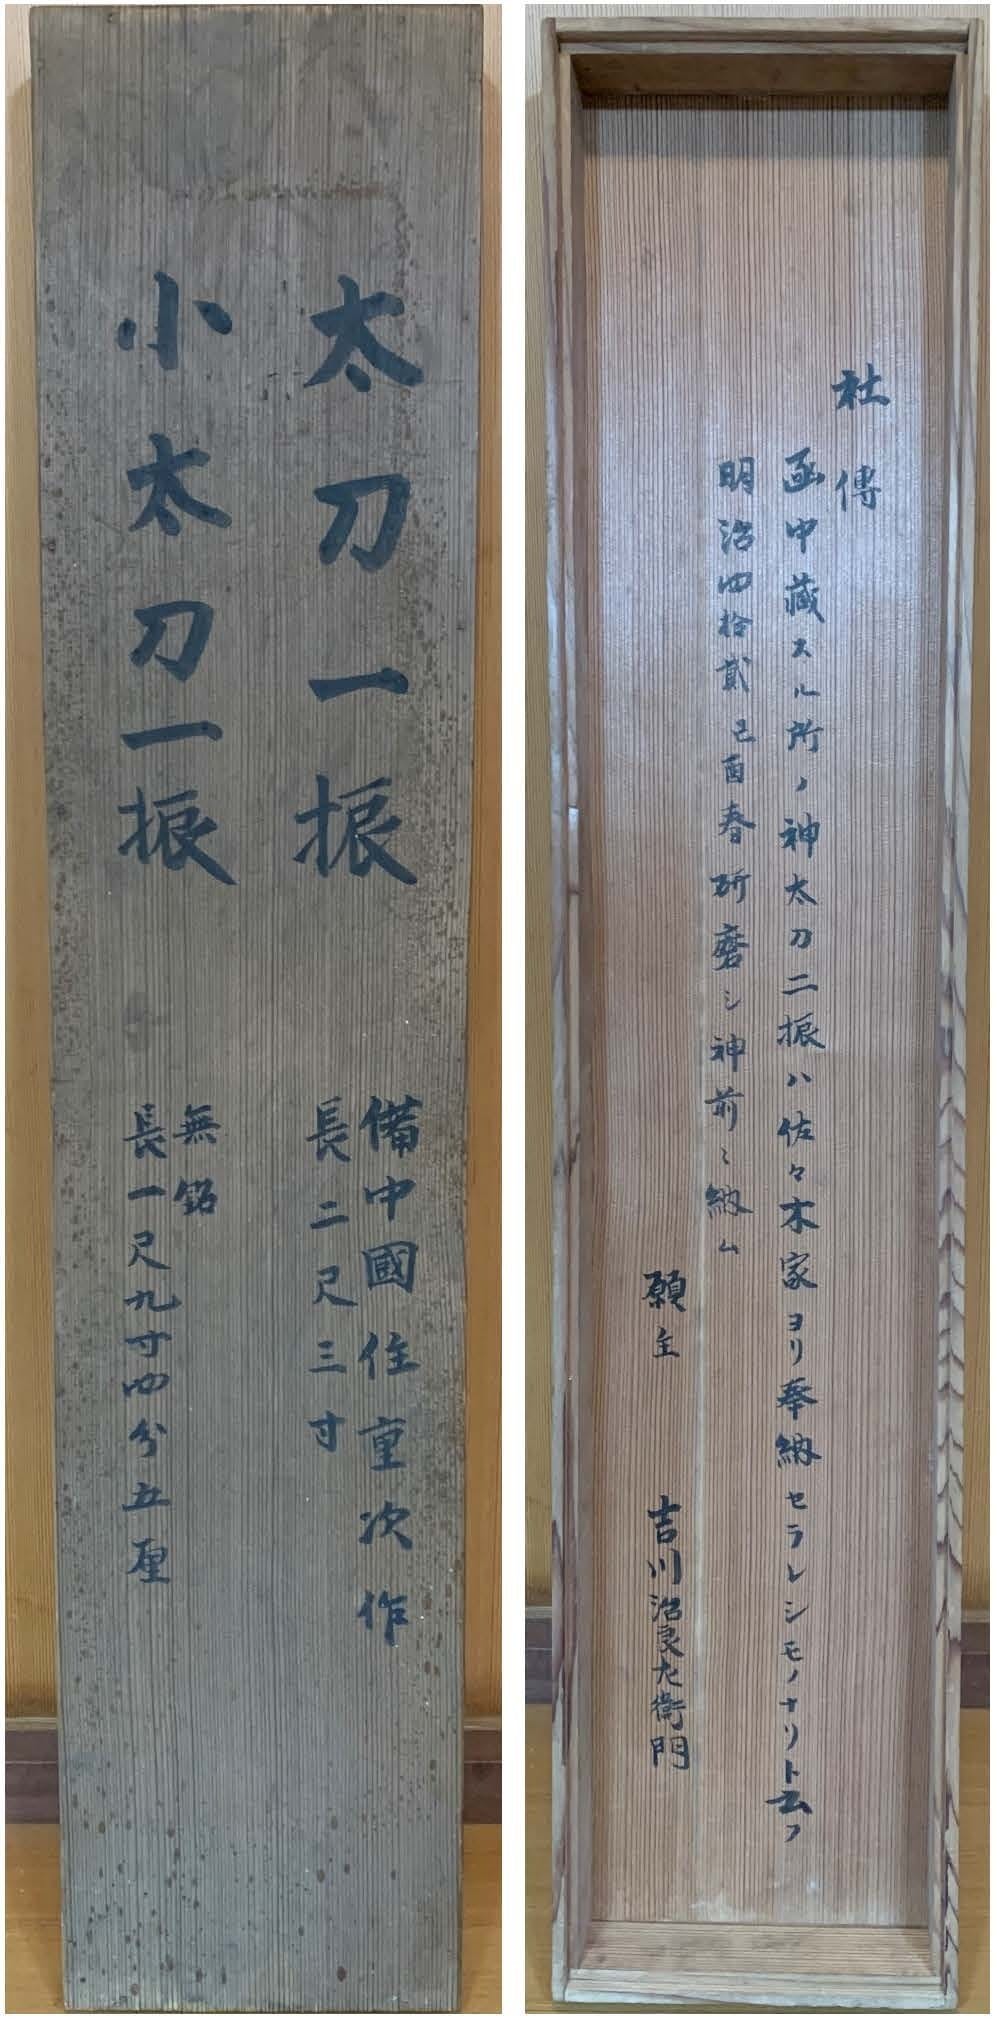 太刀一振
備中國住重次作
長二尺三寸
小太刀一振
無銘
長一尺九寸四分五厘
社傳
函中蔵スル所ノ神太刀二振ハ佐々木家ヨリ奉納セラレシモノナリト云フ
明治四拾貳己酉春研磨シ神前ニ納ム
願主
吉川治良左衛門